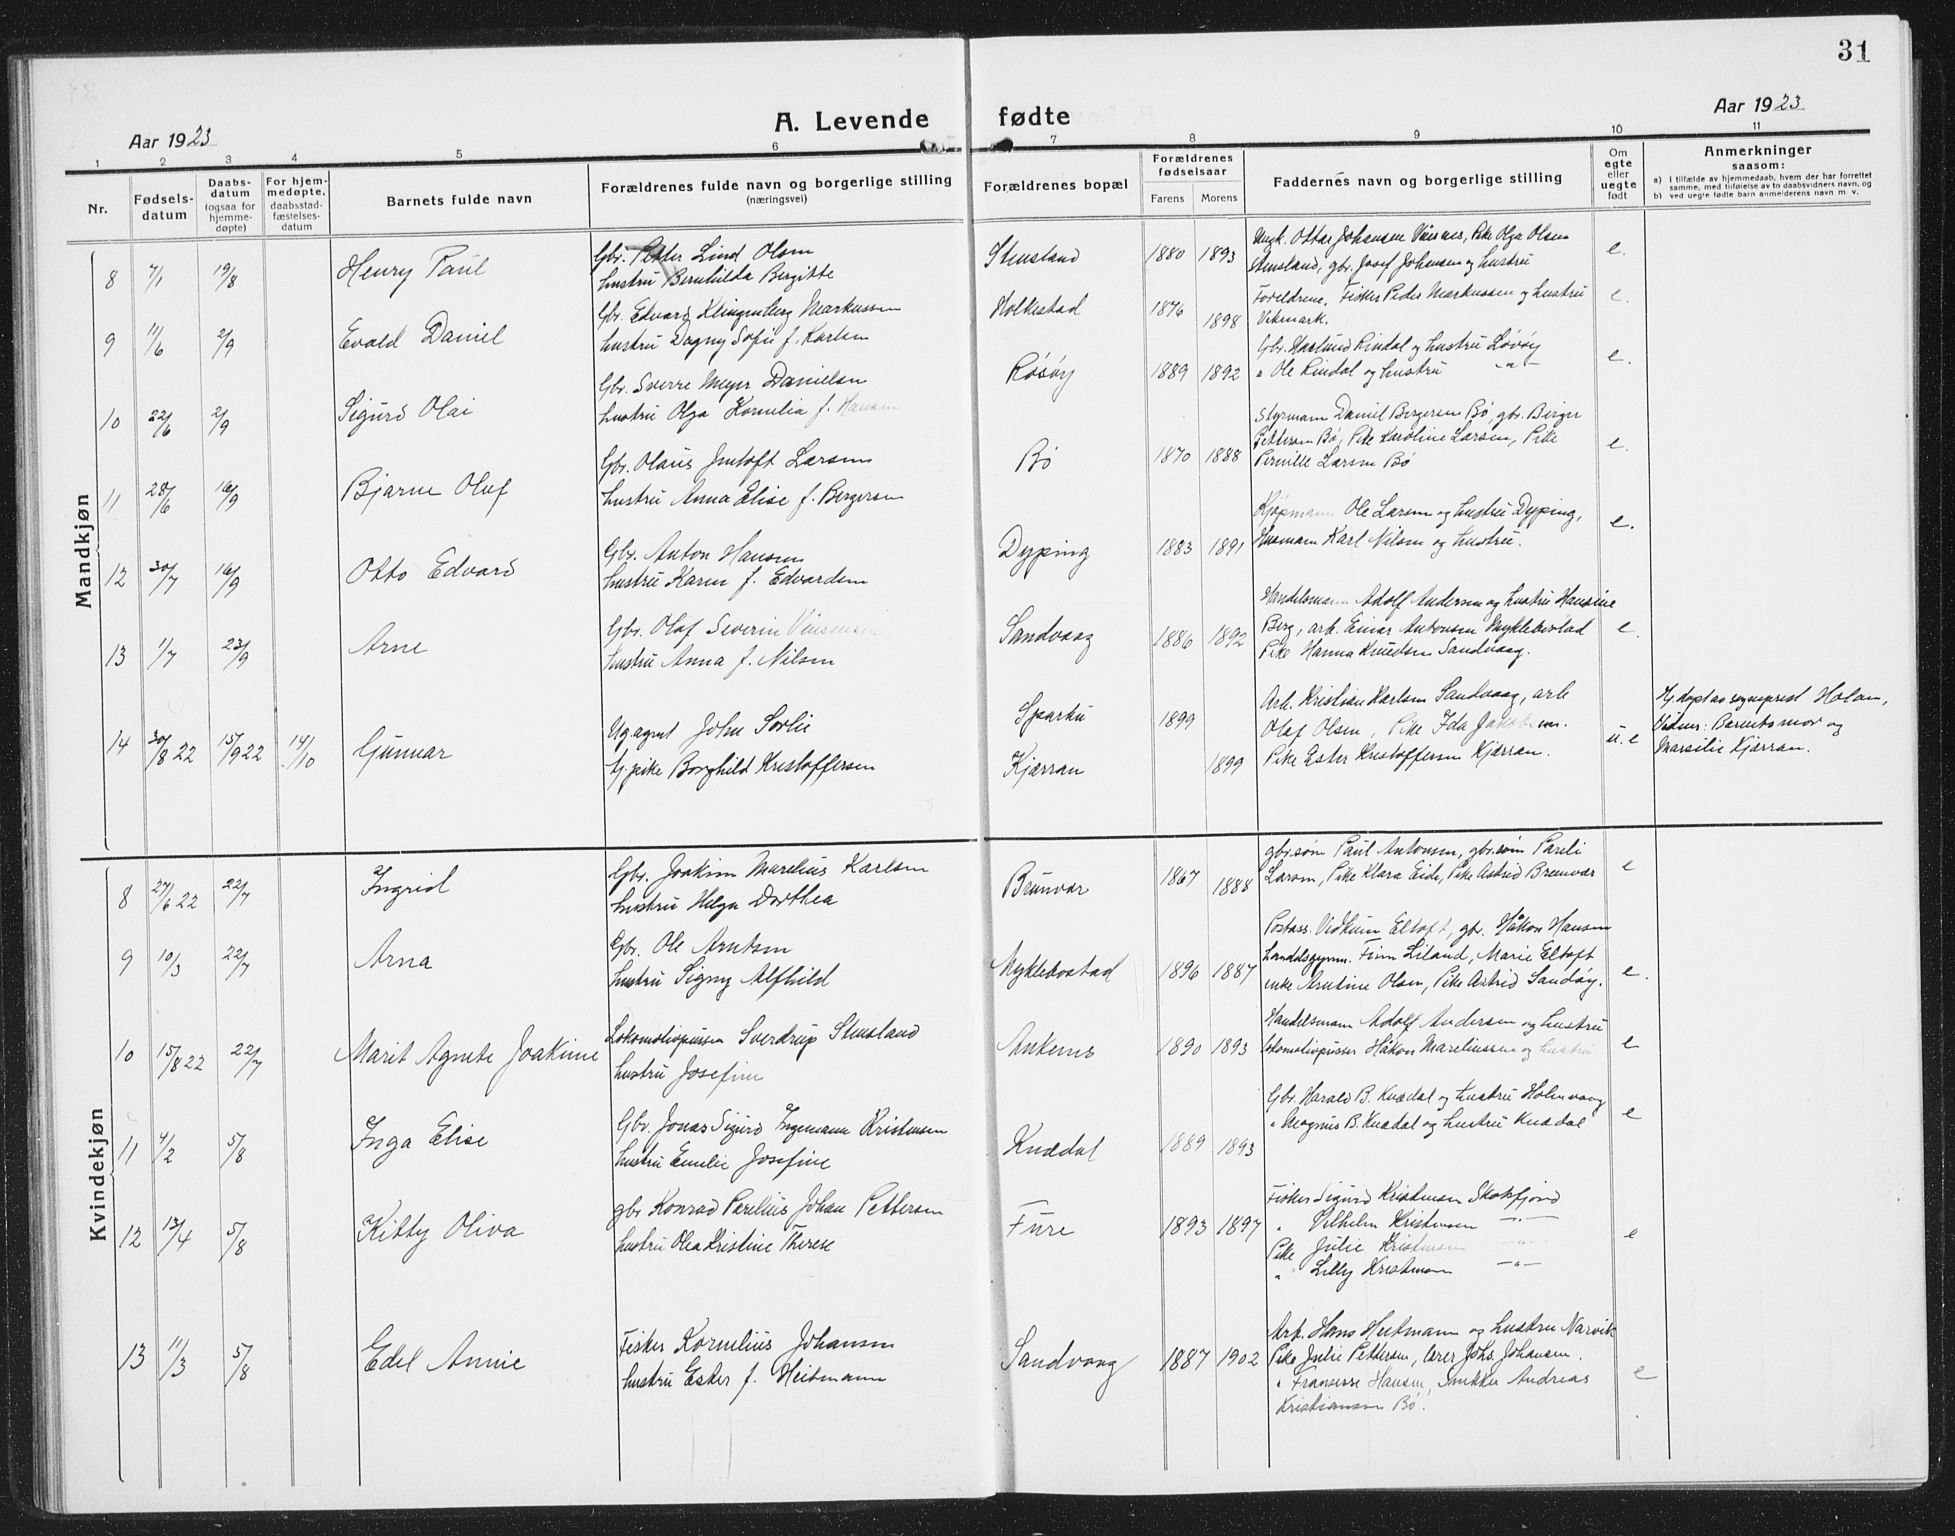 31
A. Levende fødte
Aar 1923
Aar 1923
1 2 3 4 5 6 7 8 9 10 11
Nr.
Fødsels-
datum
Daabs-
datum
(ogsaa for
hjemme-
døpte)
For hjem-
medøpte,
daabsstad-
fæstelses-
datum
Barnets fulde navn
Forældrenes fulde navn og borgerlige stilling
(næringsvei)
Forældrenes bopæl
Forældrenes
fødselsaar
Farens Morens
Faddernes navn og borgerlig stilling
Om
egte
eller
uegte
født
Anmerkninger
saasom:
a) i tilfælde av hjemmedaab, hvem der har forrettet
samme, med tilføielse av to daabsvidners navn, og
b) ved uegte fødte barn anmelderens navn m. v.
Mandkjøn
8 7/1 19/8 Henry Paul
Gbr. Petter Lind Olsen
hustru Bernhilda Bergitte
Stensland 1880 1893
Ungk. Ottar Johansen, Pike Olga Olsen
Stensland, gbr. Josef Johansen og hustru
e.
9 11/6 2/9 Evald Daniel
Gbr. Edvard Klingenberg Markussen
hustru Dagny Sofie f. Karlsen
Holkestad 1876 1898
Foreldrene, Fisker Peder Markussen og hustru
Vikmark.
e.
10 22/6 2/9 Sigurd Olai
Gbr. Sverre Meyer Danielsen
hustru Olga Kornelia f. Hansen
Røsøy 1889 1892
Gbr. Hartund Rindal og hustru Løvøy
" Ole Rindal og hustru -"-
e.
11 28/6 16/9 Bjarne Oluf
Gbr. Olaus Jentoft Larsen
hustru Anna Elise f. Bergersen
Bø 1870 1888
Styrmann Daniel Bergersen Bø, gbr. Berger
Pettersen Bø, Pike Karoline Larsen, Pike
Pernille Larsen Bø
e.
12 30/7 16/9 Otto Edvard
Gbr. Anton Hansen
hustru Karen f. Edvardsen
Dyping 1883 1891
Kjøpmann Ole Larsen og hustru Dyping,
Husmann Karl Nilsen og hustru.
e.
13 1/7 23/9 Arne
Gbr. Olaf Severin
hustru Anna f. Nilsen
Sandvaag 1886 1892
Handelsmann Adolf Andersen og hustru Hansine
Berg, arb. Einar Antonsen Myklebostad
Pike Hanna Knudsen Sandvaag.
e.
14 30/8 22 15/9 22 14/10 Gunnar
Ug. agent John Sorlie
Tj. pike Borghild Kristoffersen
1899
Kjærran 1899
Arb. Kristian Karlsen Sandvaag, arb
Olaf Olsen, Pike Ida
Pike Ester Kristoffersen Kjærran.
u.e
Hj.døpt av sogneprest Holan,
Vidner: Barnets mor og
Marsilie Kjærran.
Kvindekjøn
8 27/6 22 22/7 Ingrid
Gbr. Joakim Marelius Karlsen
hustru Helga Dorthea
Brunvær 1867 1888
gbr.søn Paul Antonsen, gbr.søn Pareli
Larsen, Pike Klara Eide, Pike Astrid Brunvær
e
9 10/3 22/7 Arna
Gbr. Ole Arntsen
hustru Signy Alfhild
Myklebostad 1896 1887
Postass. Vidkun Eltoft, gbr. Håkon Hansen
Landdsgymn. Finn Liland, Marie Eltoft
enke Arntine Olsen, Pike Astrid Sandøy.
e.
10 15/8 22 22/7 Marit Agnete Joakime
Lokomotivpusser Sverdrup Stensland
hustru Josefine
Ankenes 1890 1893
Handelsmann Adolf Andersen og hustru
lokomotivpusser Håkon Mareliussen og hustru
e
11 4/2 5/8 Inga Elise
Gbr. Jonas Sigurd Ingemann Kristensen
hustru Emelie Josefine
Knædal 1889 1893
Gbr. Harald B. Knædal og hustru Holmvaag
" Magnus B. Knædal og hustru Knædal
e
12 13/4 5/8 Kitty Oliva
gbr Konrad Parelius Johan Pettersen
hustru Olea Kristine Therese
Fure 1893 1897
Fisker Sigurd Kristensen Skotsfjord
" Vilhelm Kristensen -"-
Pike Julie Kristensen -"-
" Lilly Kristensen -"-
e
13 11/3 5/8 Edel Annie
Fisker Kornelius Johansen
hustru Ester f. Heitmann
Sandvaag 1887 1902
Arb. Hans Heitmann og hustru Narvik
Pike Julie Pettersen, lærer Johs. Johansen.
" Fransisse Hansen, Snekker Andreas
Kristiansen Bø.
e